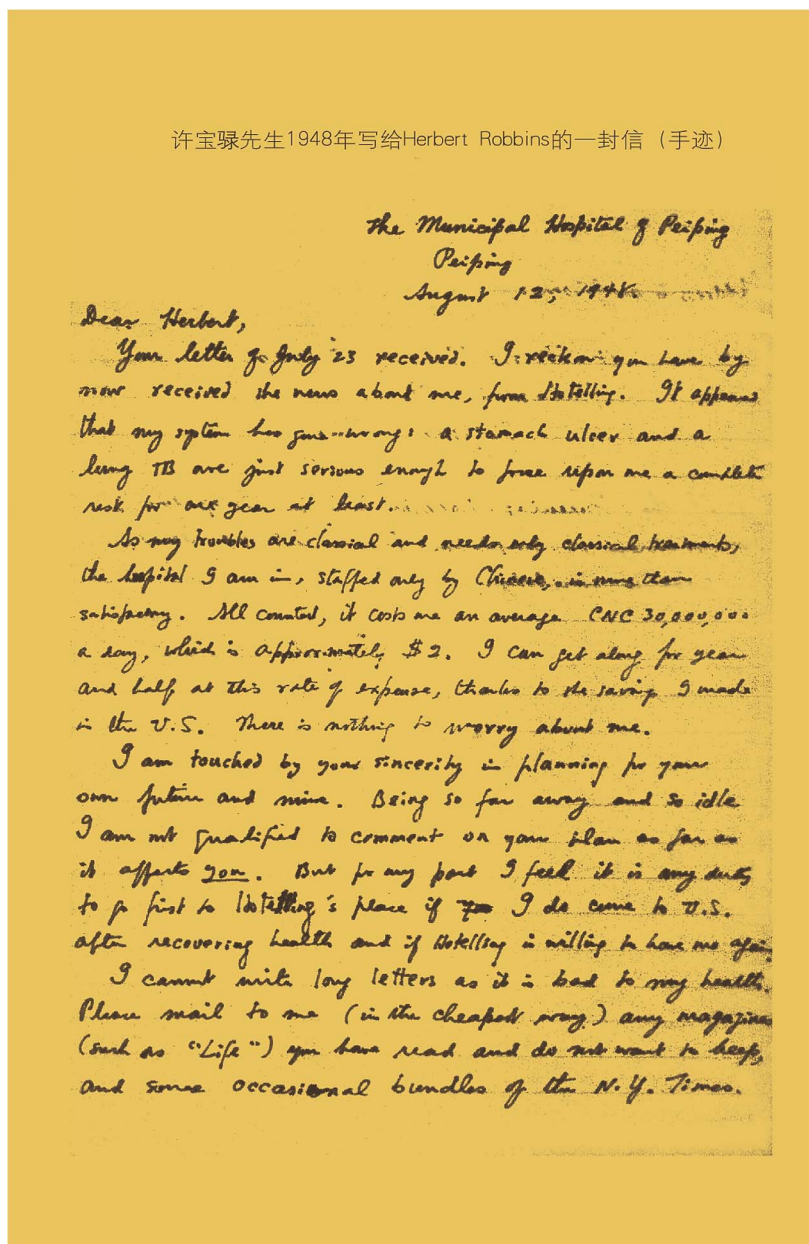 许宝騄先生1948年写给Herbert Robbins的一封信（手迹）
The Municipal Hospital of Peiping
Peiping
August 12, 1948.
Dear Herbert,
Your letter of July 23 received. I reckon you have by
now received the news about me, from Hotelling. It appears
that my system has gone wrong: a stomach ulcer and a
lung TB are just serious enough to force upon me a complete
rest for one year at least.
As my troubles are classical and needs only classical treatments,
the hospital I am in, staffed only by Chinese, is more than
satisfactory. All counted, it costs me an average CNC 30,000,000
a day, which is approximately $2. I can get along for year
and half at this rate of expense, thanks to the saving I made
in the U.S. There is nothing to worry about me.
I am touched by your sincerity in planning for your
own future and mine. Being so far away and so idle
I am not qualified to comment on your plan as far as
it affects you. But for my part I feel it is my duty
to go first to Hotelling's place if I do come to U.S.
after recovering health and if Hotelling is willing to have me again.
I cannot write long letters as it is bad to my health.
Please mail to me (in the cheapest way) any magazines
(such as "Life") you have read and do not want to keep,
and some occasional bundles of the N.Y. Times.